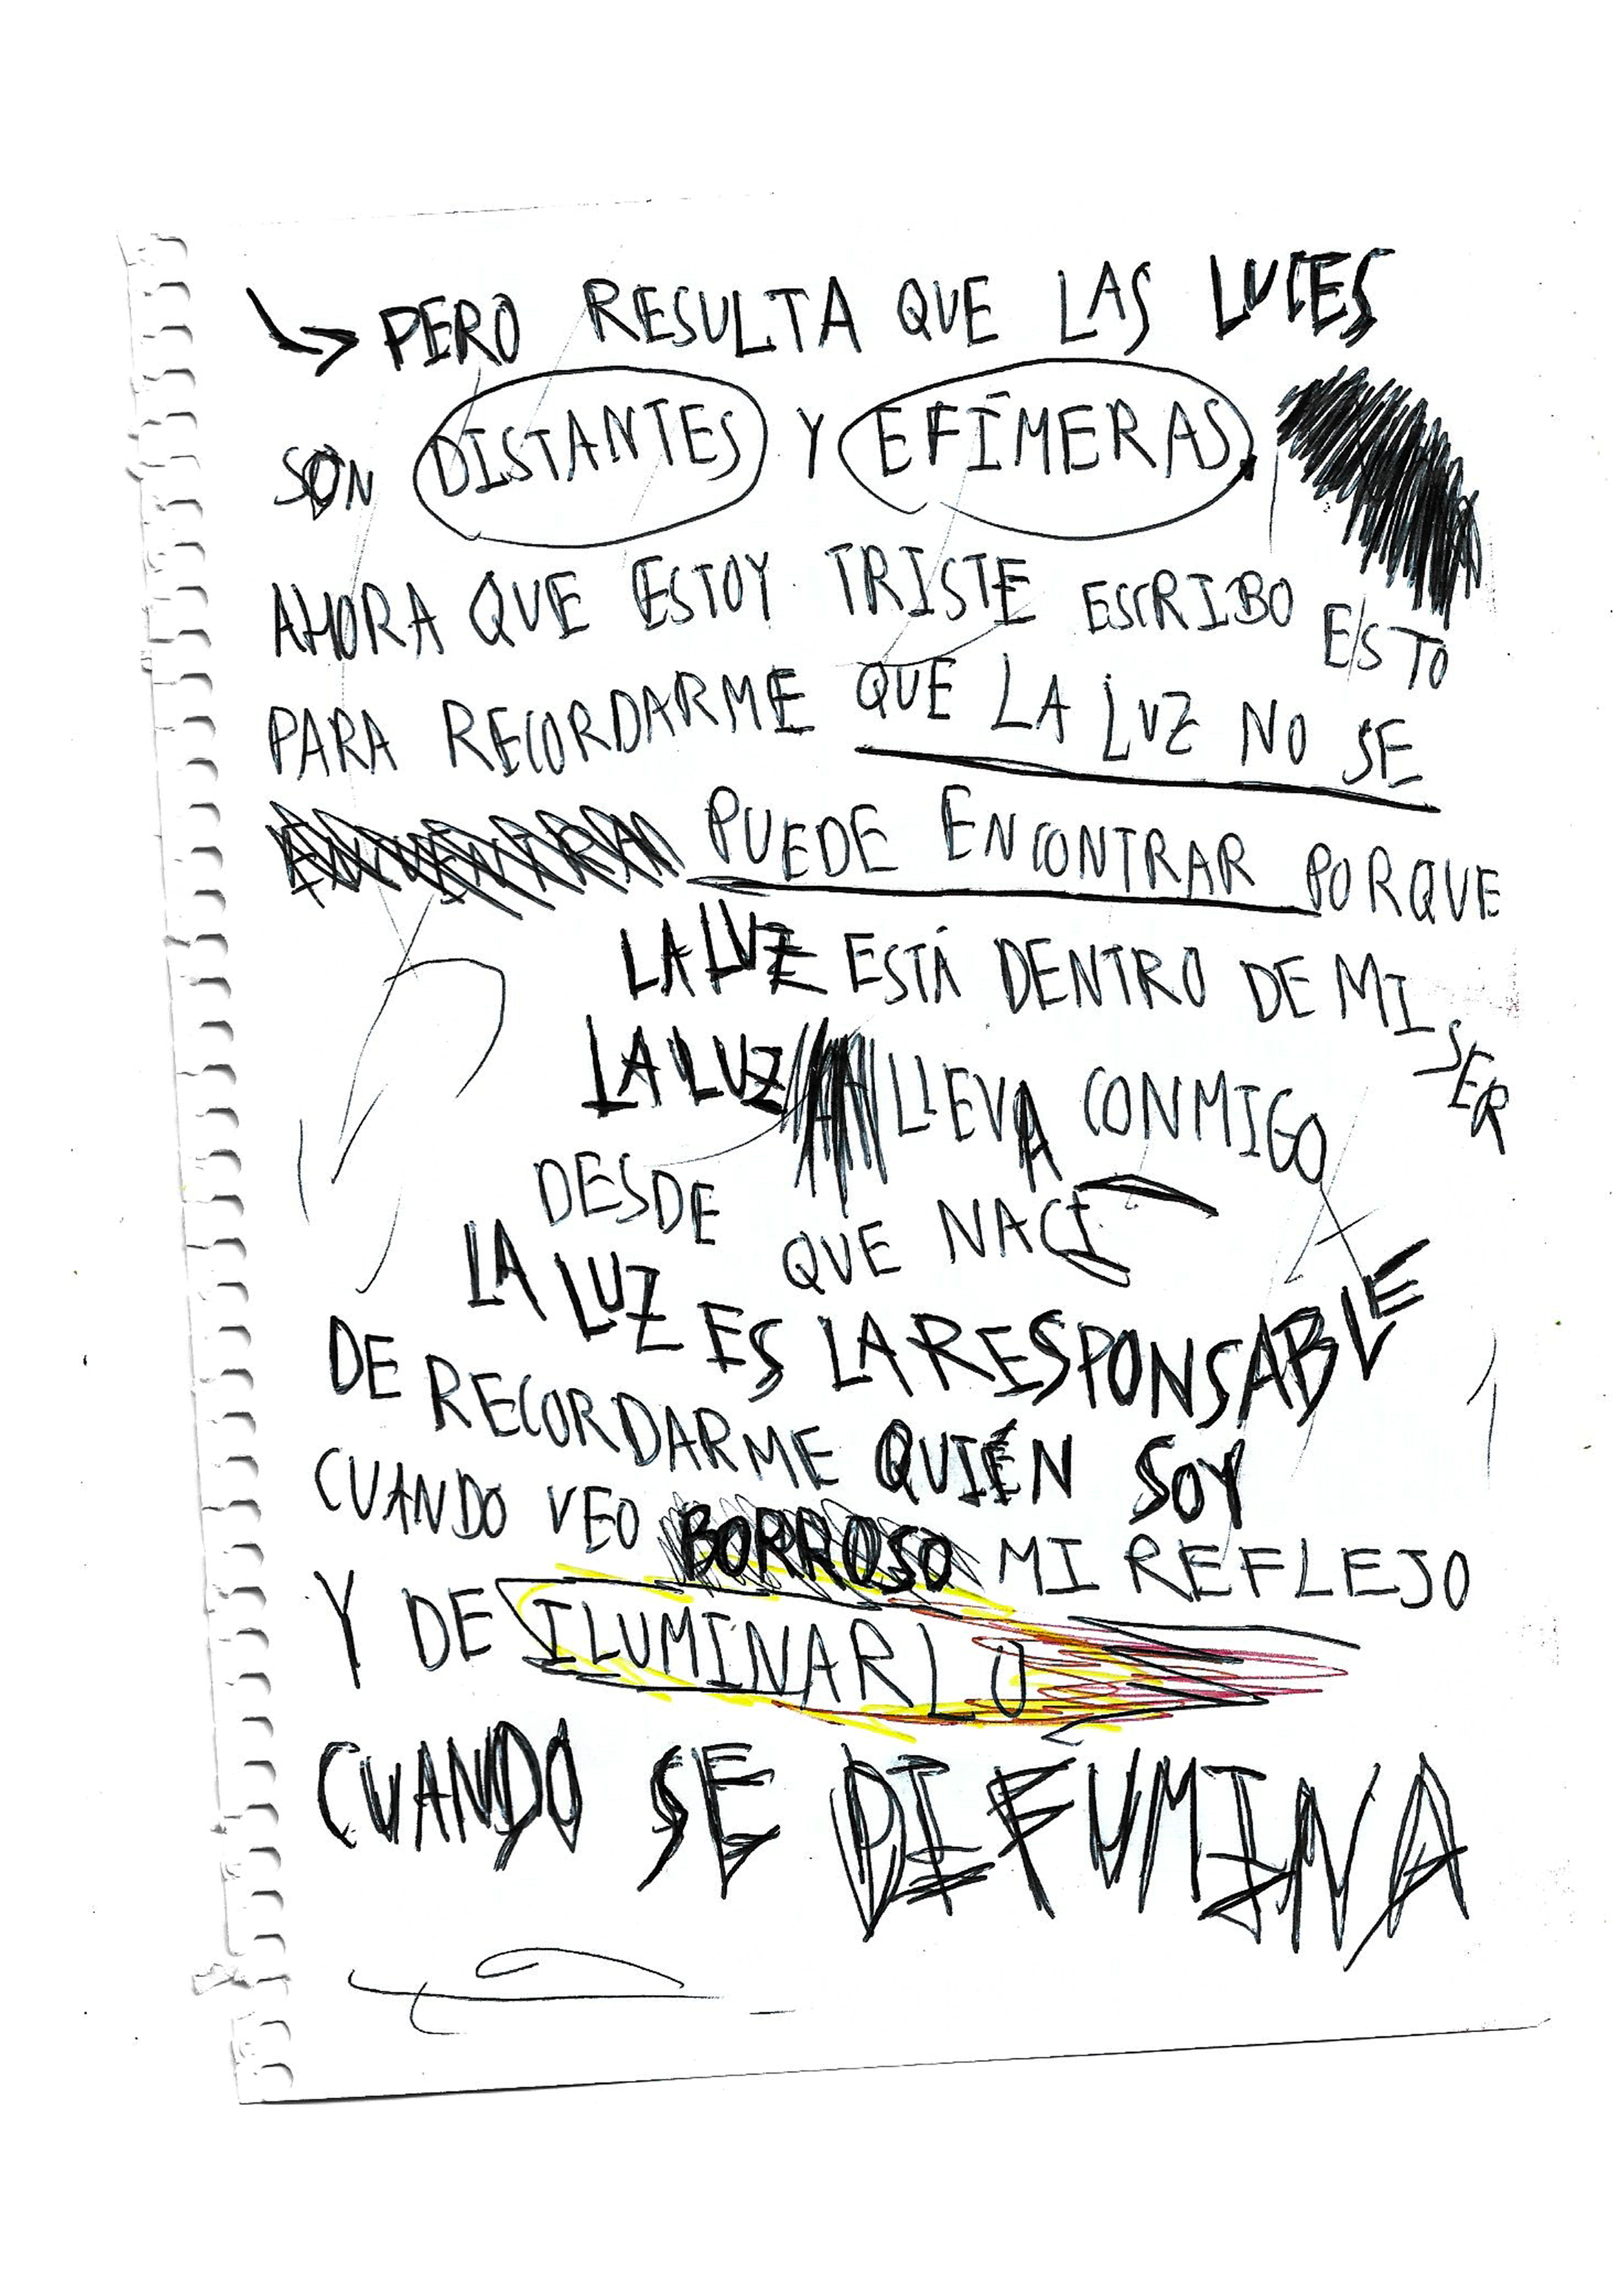 PERO RESULTA QUE LAS LUCES
SON DISTANTES Y EFÍMERAS.
AHORA QUE ESTOY TRISTE ESCRIBO ESTO
PARA RECORDARME QUE LA LUZ NO SE
PUEDE ENCONTRAR PORQUE
LA LUZ ESTÁ DENTRO DE MI SER
LA LUZ LLEVA CONMIGO
DESDE QUE NACÍ
LA LUZ ES LA RESPONSABLE
DE RECORDARME QUIÉN SOY
CUANDO VEO BORROSO MI REFLEJO
Y DE ILUMINARLO
CUANDO SE DIFUMINA